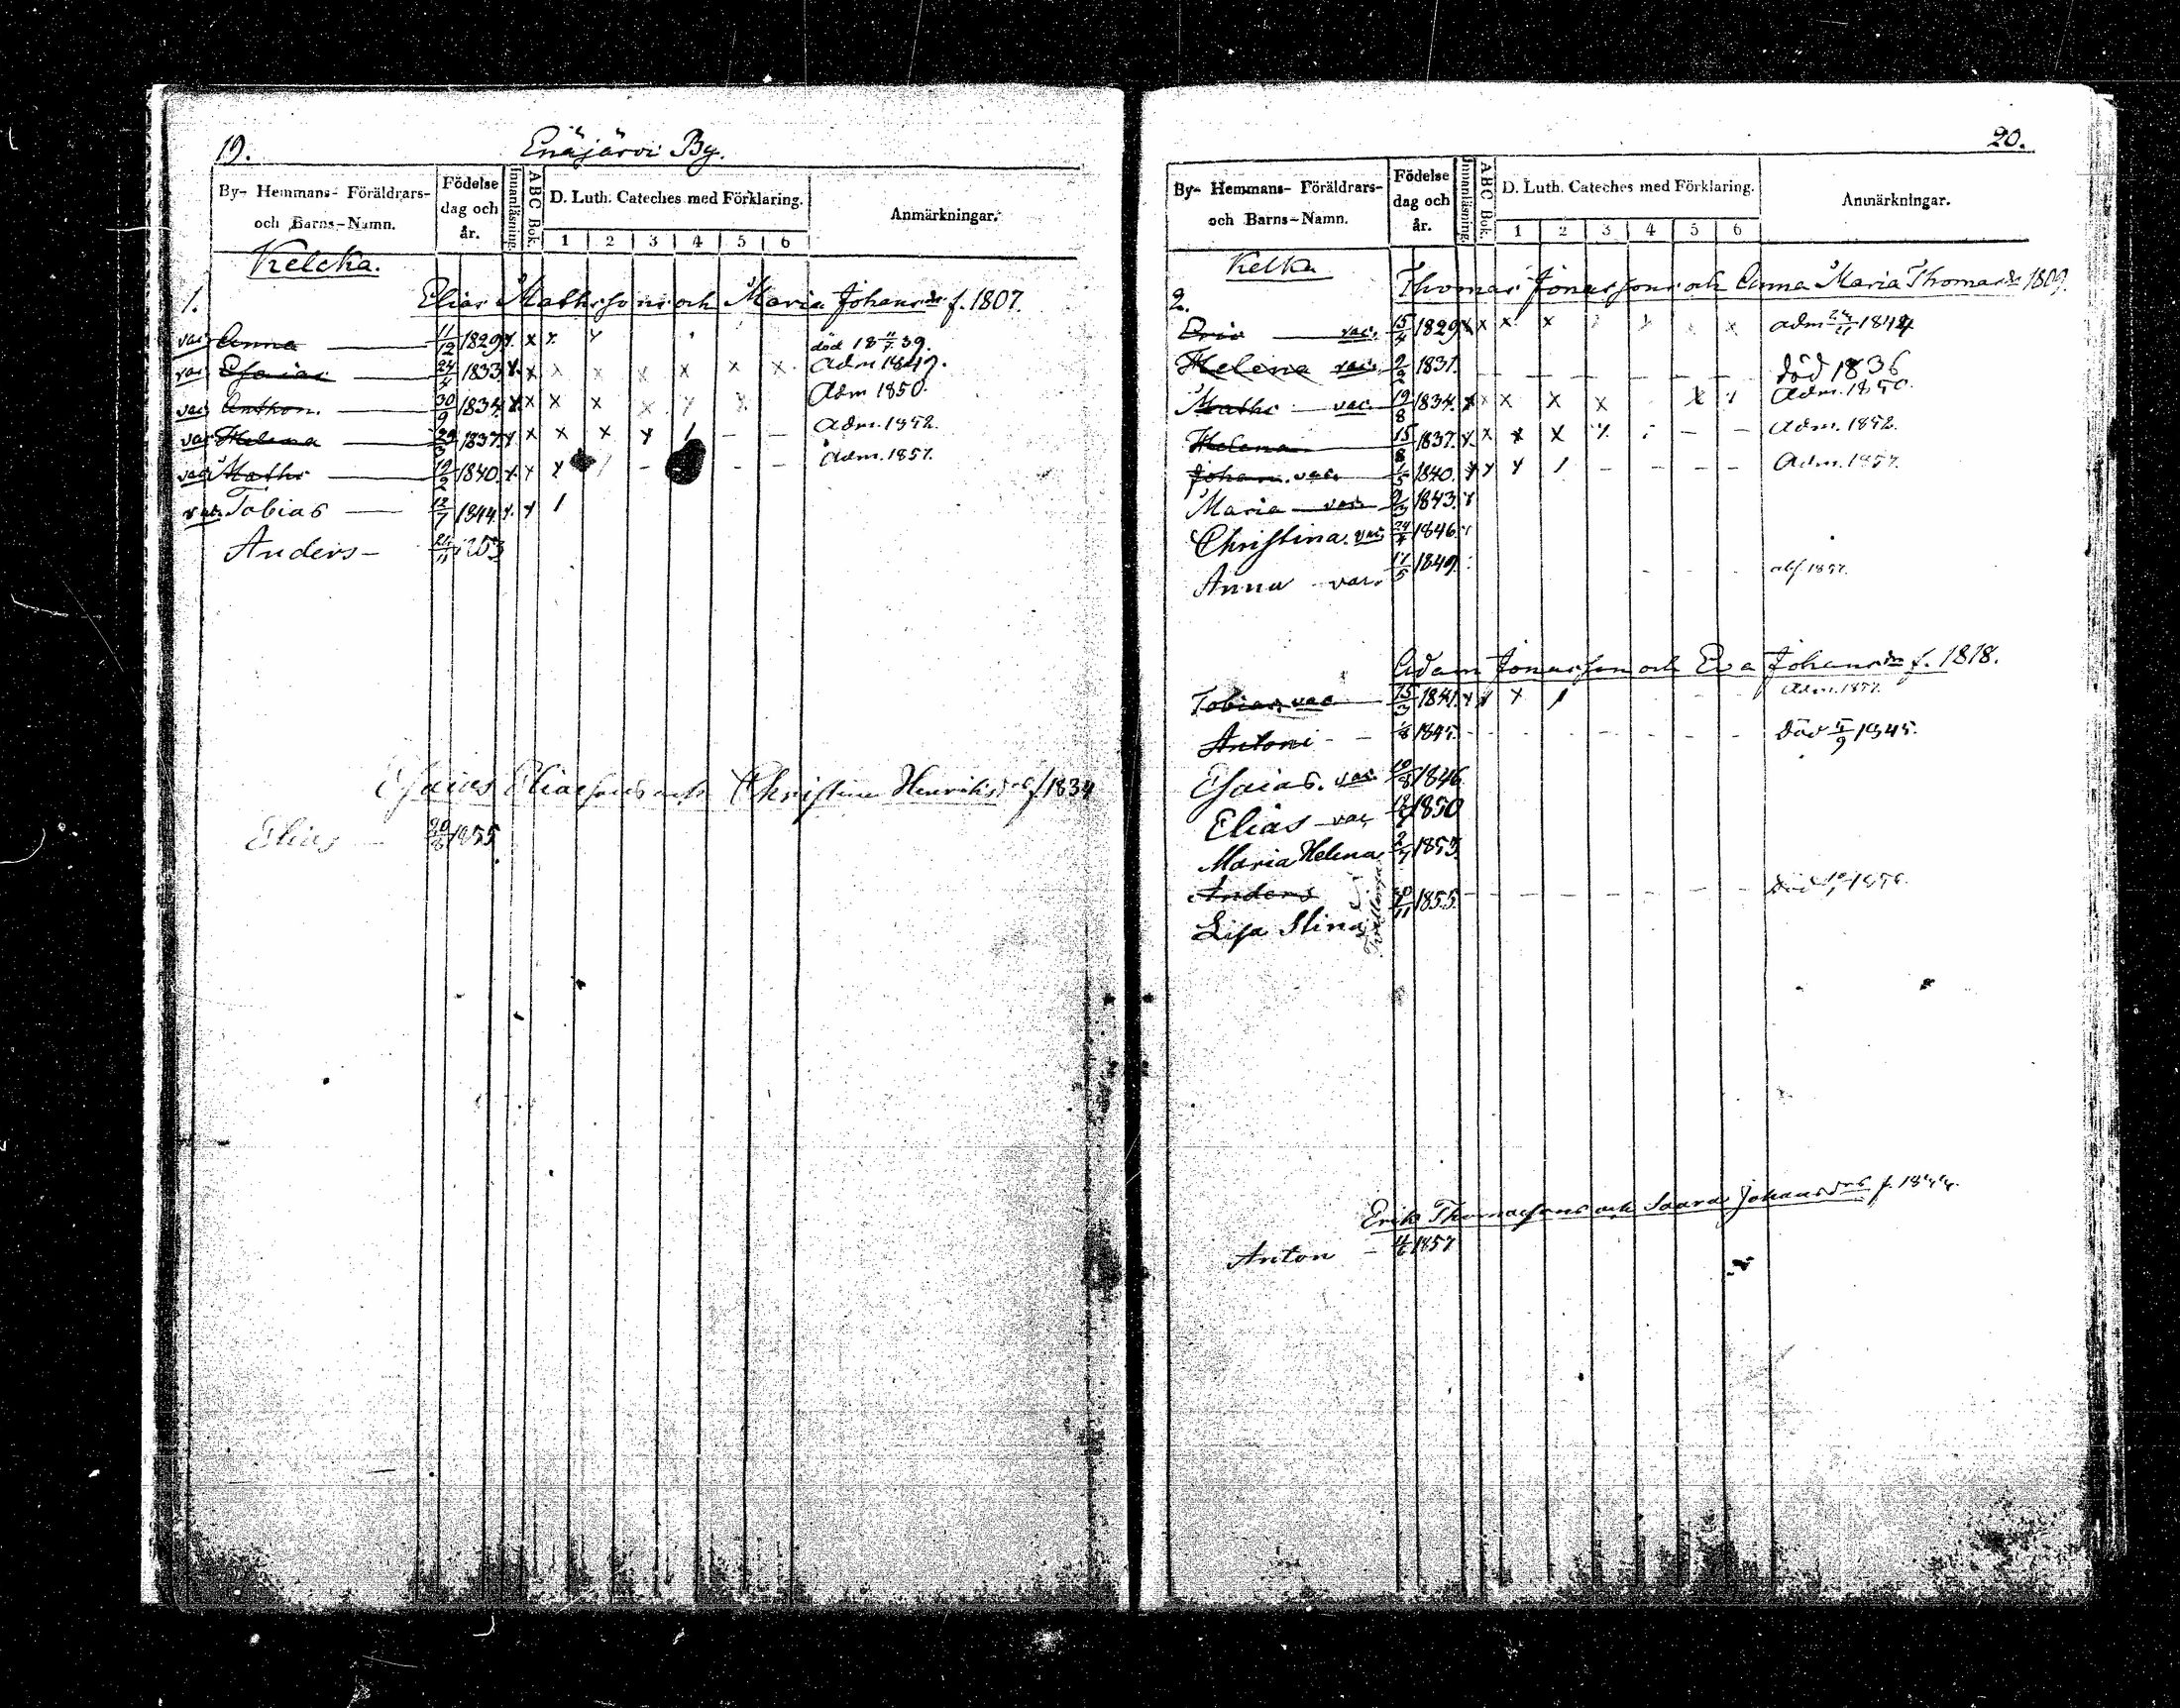 19.
Enäjärvi By.
By- Hemmans- Föräldrars-
och Barns-Namn.
Födelse
dag och
år.
Innanläsning.
ABC Bok.
D. Luth. Cateches med Förklaring.
1 2 3 4 5 6
Anmärkningar.
Kelcka.
1. Elias Mathssons och Maria Johansdr f. 1807.
vac Anna 11/12 1829 x x x död 18 39.
vac Esaias 24/4 1833 x x x x x x x x Adm 1849.
vac Anthon. 30/9 1834 x x x x x Adm 1850.
vac Helena 1837 x x x x Adm. 1852.
vac Maths 1840 x x x Adm. 1857.
vac Tobias 12/7 1844 x x 1
Anders 24/11 1853
Esaias Eliassons och Christina Henriksdrs f 1834
Elias 1855
20.
By- Hemmans- Föräldrars-
och Barns-Namn.
Födelse
dag och
år.
Innanläsning.
ABC Bok.
D. Luth. Cateches med Förklaring.
1 2 3 4 5 6
Anmärkningar.
Kelka
2. Thomas Jonassons och Anna Maria Thomasdr 1809.
Eric vac. 15/4 1829 x x x x adm 1844
Helena vac. 2/2 1831. död 1836
Maths vac. 19/8 1834. x x x x x Adm. 1850.
Helena 15/8 1837. x x x x Adm. 1852.
Johan. vac. 1/5 1840. x x x 1 Adm. 1857.
Maria vac. 2/3 1843. x
Christina. vac. 24/4 1846.
Anna vac. 17/5 1849. 1857.
Adam Jonasson och Eva Johansdr f. 1818.
Tobias. vac 15/3 1841. x x x 1 Adm. 1857.
Antoni 1/8 1845. död 1845.
Esaias. vac. 1846
Elias vac 1850
Maria Helena 1853.
Anders död 1856.
Tvillingar 30/11 1855
Lisa Stina
Erik Thomassons och Saara Johansdrs f.
Anton 1857